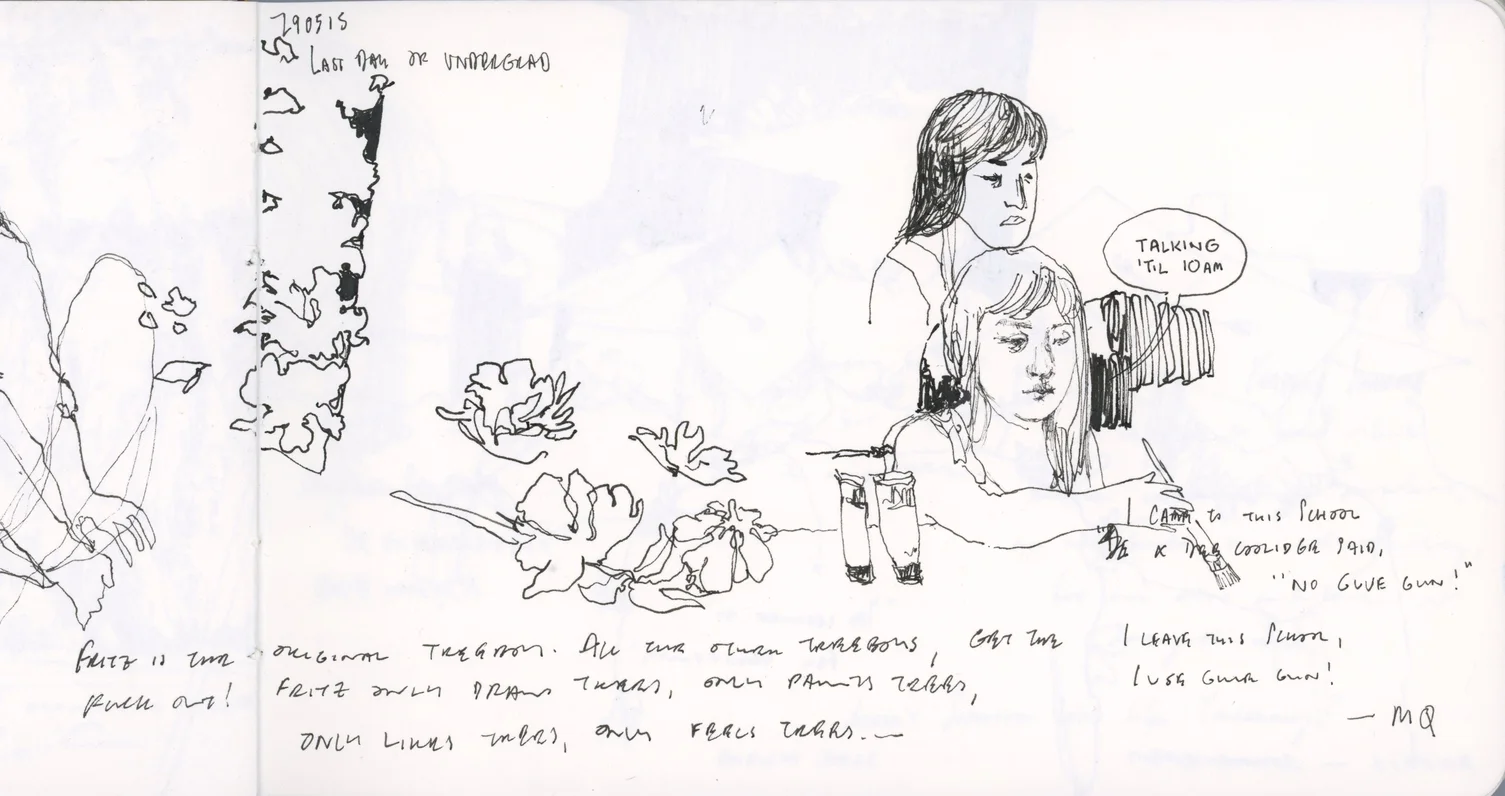 290515
LAST DAY OF UNDERGRAD
TALKING
'TIL 10AM
I CAME TO THIS SCHOOL
& DEE COOLIDGE SAID,
"NO GLUE GUN!"
I LEAVE THIS SCHOOL,
I USE GLUE GUN!
— MQ
FRITZ IS THE ORIGINAL TREEBOY. ALL THE OTHER TREEBOYS, GET THE
FUCK OUT! FRITZ ONLY DRAWS TREES, ONLY PAINTS TREES,
ONLY LIKES TREES, ONLY FEELS TREES.—